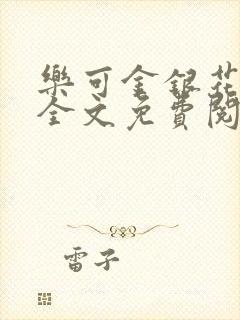 樂可金銀花
全文免費閱
雷子